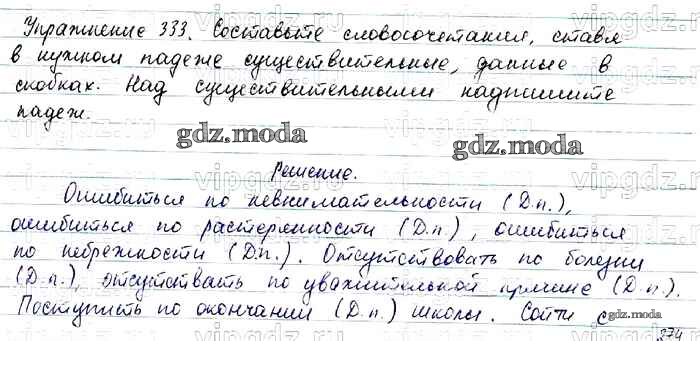 Упражнение 333. Составьте словосочетания, ставя
в нужном падеже существительные, данные в
скобках. Над существительными надпишите
падеж.
gdz.moda
gdz.moda
Решение.
Ошибиться по невнимательности (Д.п.),
ошибиться по растерянности (Д.п.), ошибиться
по небрежности (Д.п.). Отсутствовать по болезни
(Д.п.), отсутствать по уважительной причине (Д.п.).
Поступить по окончании (Д.п.) школы. Сойти с
gdz.moda
274